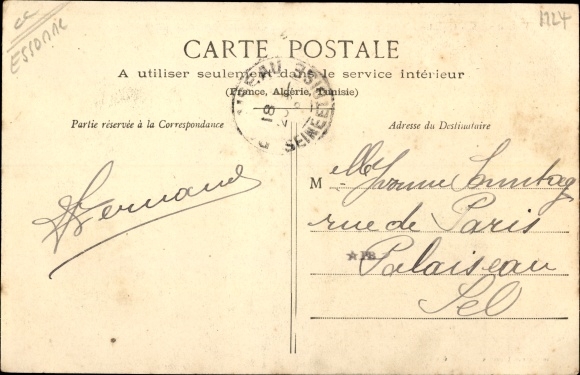 cc
ESSONNE
1724
CARTE POSTALE
A utiliser seulement dans le service intérieur
(France, Algérie, Tunisie)
Partie réservée à la Correspondance
Adresse du Destinataire
SEINE ET OISE
18
Fernand
M elle Yvonne Sonntag
rue de Paris
★ PB
Palaiseau
S et O